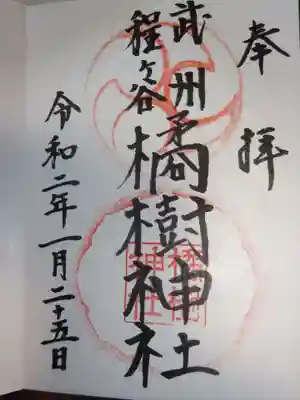 奉拝
武州
程ヶ谷
橘樹神社
橘樹
神社
令和二年一月二十五日